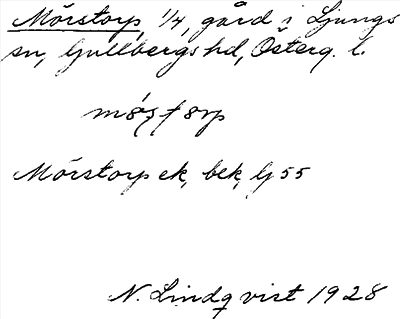 Mörstorp, 1/4, gård i Ljungs
sn, Gullbergs hd, Österg. l.
Mörstorp ek, bek, Lj 55
N. Lindqvist 1928